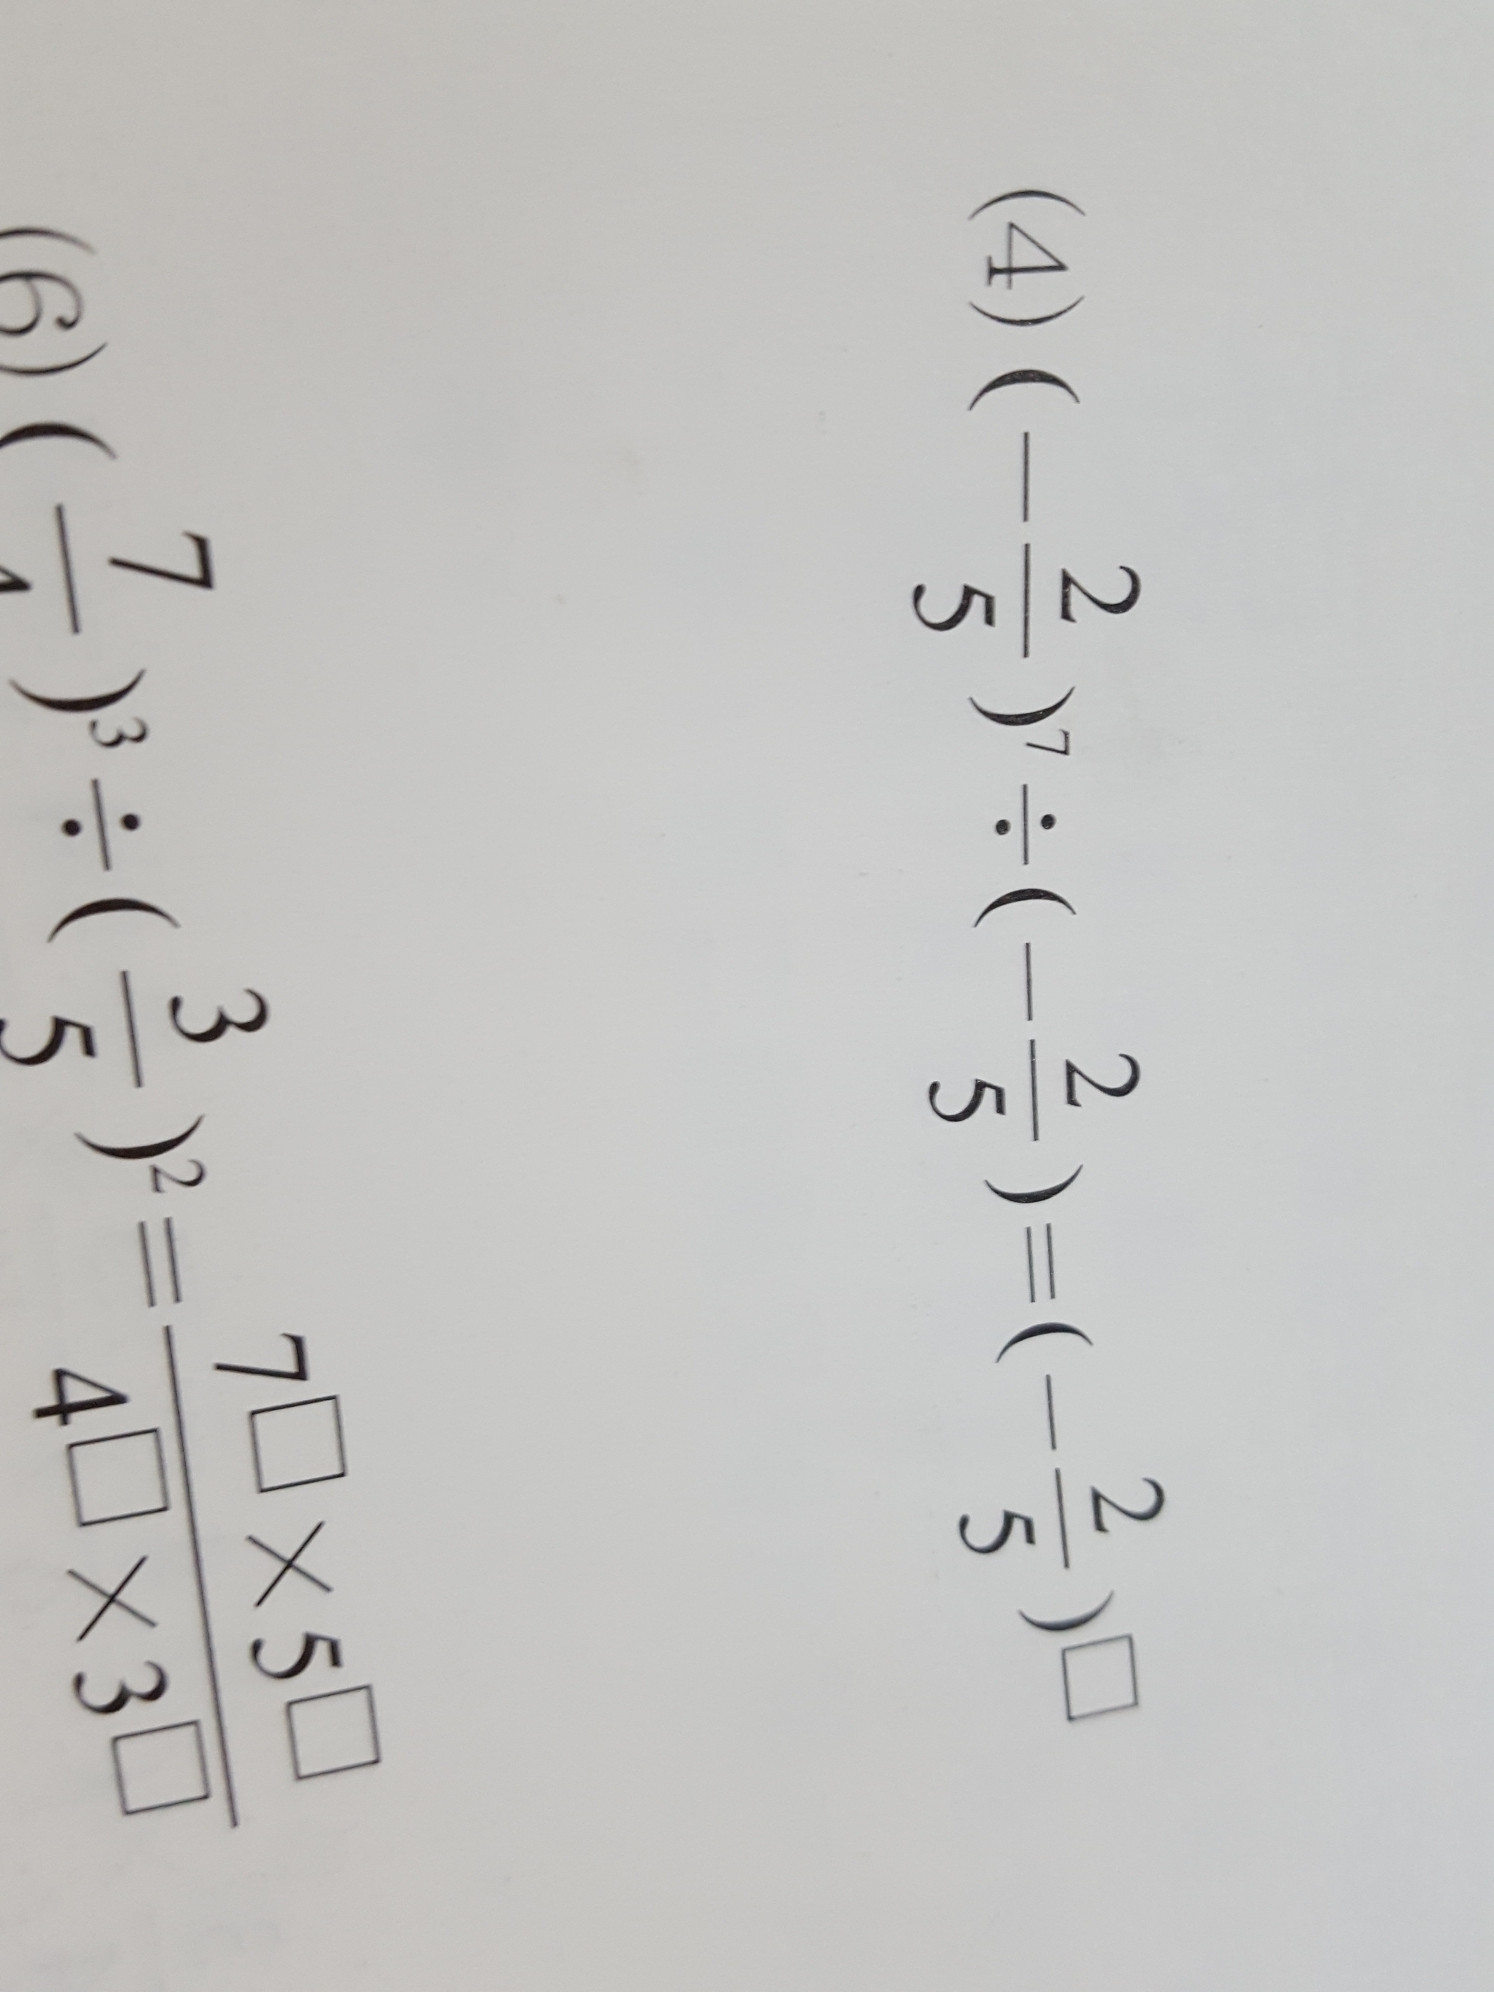 (4) (-2/5)⁷÷(-2/5)=(-2/5)□
(6) (7/4)³÷(3/5)²=7□×5□/4□×3□